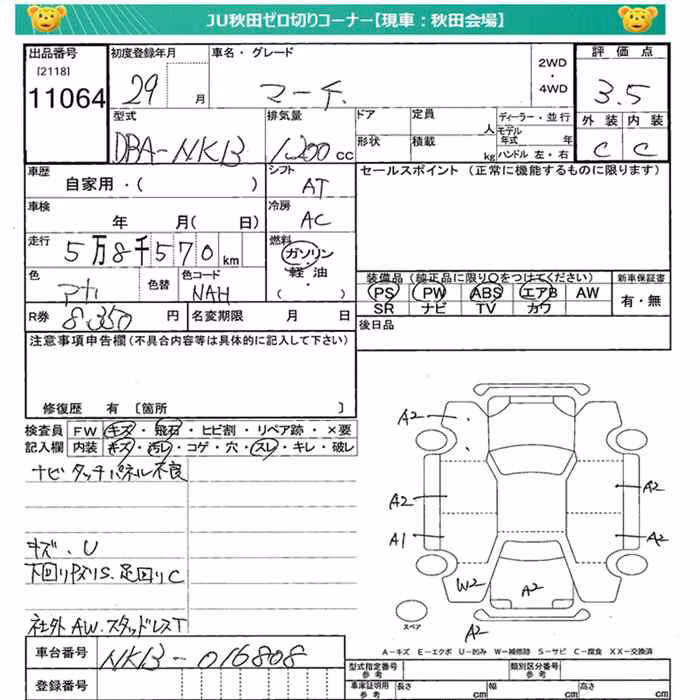 JU秋田ゼロ切りコーナー【現車：秋田会場】
出品番号
[2118]
11064
初度登録年月
29 月
車名・グレード
マーチ
2WD
・
4WD
評価点
3.5
外装 内装
C C
型式
DBA-NK13
排気量
1200 CC
ドア
定員
人
形状
積載
kg
ディーラー・並行
モデル年式 年
ハンドル 左・右
車歴
自家用・( )
シフト
AT
車検
年 月( 日)
冷房
AC
走行
5万8千570km
燃料
ガソリン
・
軽油
・
( )
色
色替
色コード
NAH
R券 8,350 円
名変期限 月 日
セールスポイント (正常に機能するものに限ります)
装備品 (純正品に限り○をつけてください)
PS PW ABS エアB AW
SR ナビ TV カワ
新車保証書
有・無
後日品
注意事項申告欄(不具合内容等は具体的に記入して下さい)
修復歴 有 〔箇所 〕
検査員記入欄
FW キズ・飛石・ヒビ割・リペア跡・×要
内装 キズ・汚レ・コゲ・穴・スレ・キレ・破レ
ナビ タッチパネル不良
キズ、U
下回りサビS.足回りC
社外AW.スタッドレスT
車台番号
NK13-016808
登録番号
A2
A2
A1
A2
A2
W2
A2
A2
スペア
A-キズ E-エクボ U-凹み W-補修跡 S-サビ C-腐食 XX-交換済
型式指定番号
参考
類別区分番号
参考
車庫証明用
参考
長さ cm
幅 cm
高さ cm